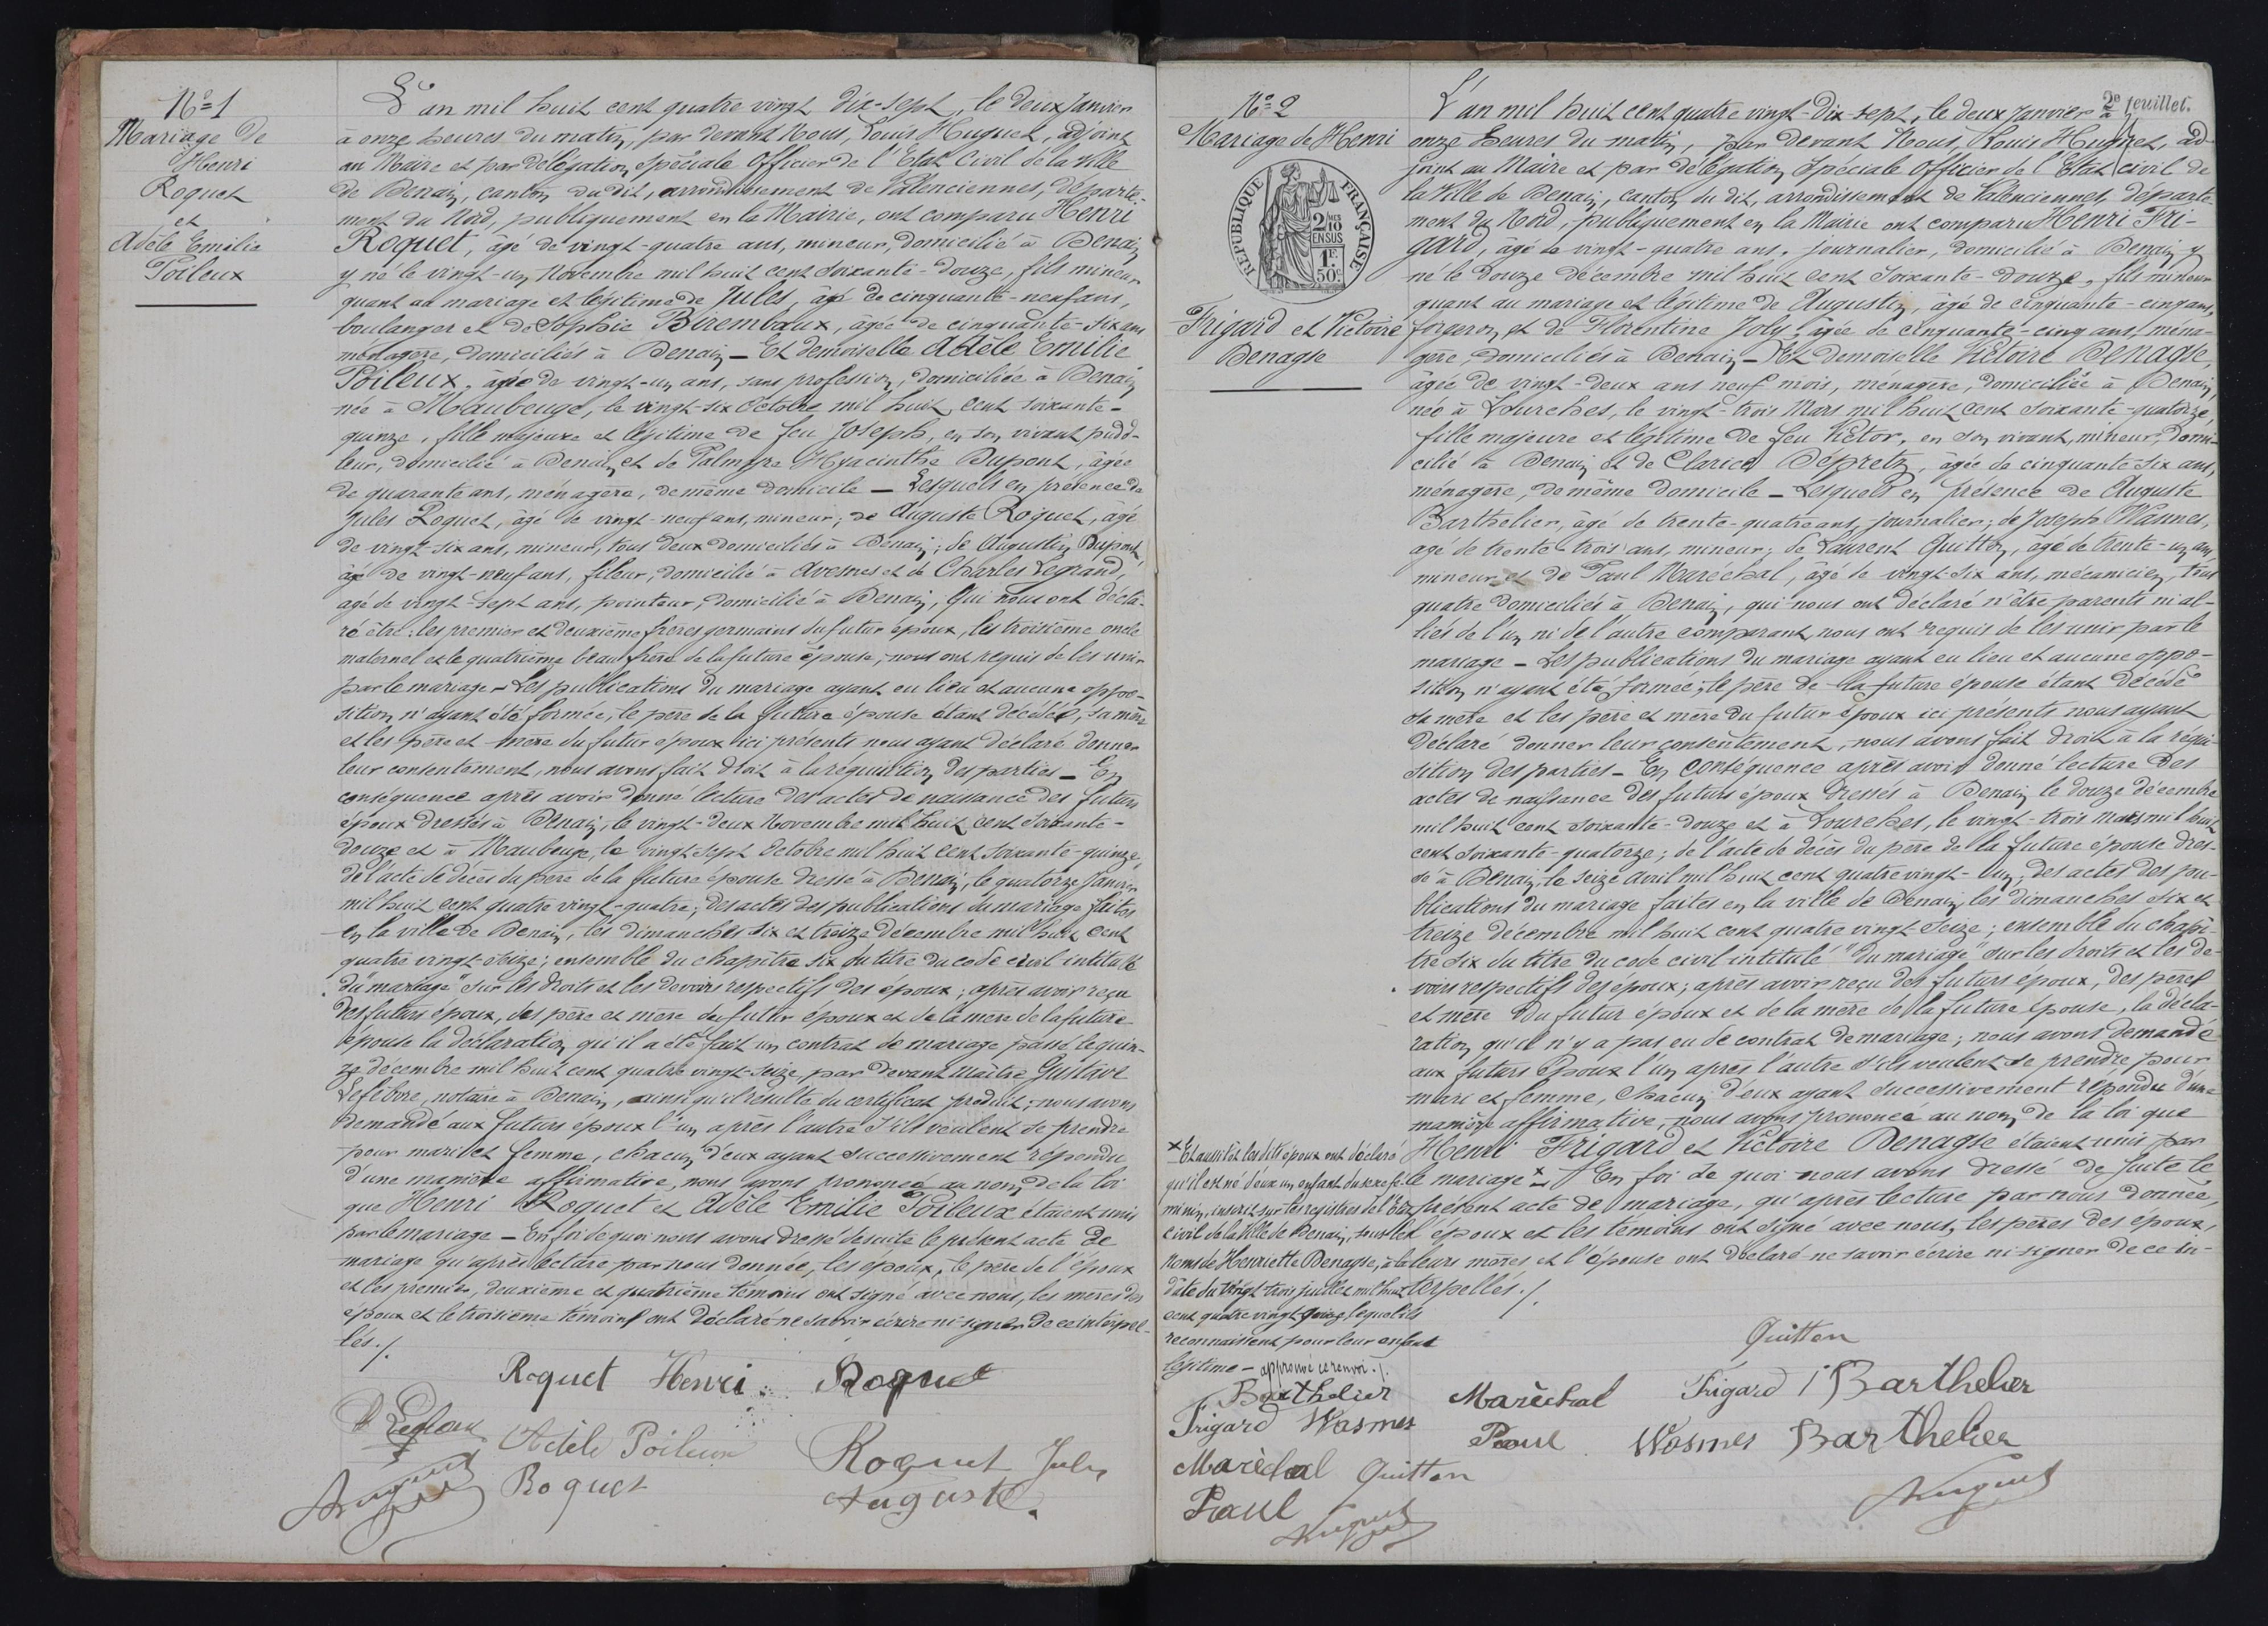 N° 1
Mariage de
Henri
Roquet
et
Adèle Emilie
Poileux
L'an mil huit cent quatre vingt dix-sept, le deux Janvier
à onze heures du matin, par devant Nous, Louis Huguet, adjoint
au Maire et par délégation spéciale Officier de l'Etat Civil de la ville
de Denain, canton du dit, arrondissement de Valenciennes, départe-
ment du Nord, publiquement en la Mairie, ont comparu Henri
Roquet, âgé de vingt-quatre ans, mineur, domicilié à Denain
y né le vingt-un Novembre mil huit cent soixante-douze, fils mineur
quant au mariage et légitime de Jules, âgé de cinquante-neuf ans,
boulanger et de Sophie Birembaux, âgée de cinquante-six ans
ménagère, domiciliés à Denain — Et demoiselle Adèle Emilie
Poileux, âgée de vingt-un ans, sans profession, domiciliée à Denain
née à Maubeuge, le vingt-six Octobre mil huit cent soixante-
quinze, fille majeure et légitime de feu Joseph, en son vivant pudd-
leur, domicilié à Denain et de Palmyre Hyacinthe Dupont, âgée
de quarante ans, ménagère, de même domicile — Lesquels en présence de
Jules Roquet, âgé de vingt-neuf ans, mineur; de Auguste Roquet, âgé
de vingt-six ans, mineur, tous deux domiciliés à Denain; de Augustin Dupont,
âgé de vingt-neuf ans, fileur, domicilié à Avesnes et de Charles Legrand,
âgé de vingt-sept ans, pointeur, domicilié à Denain, qui nous ont décla-
ré être: les premier et deuxième frères germains du futur époux, les troisième oncle
maternel et le quatrième beau frère de la future épouse, nous ont requis de les unir
par le mariage — Les publications du mariage ayant eu lieu et aucune oppo-
sition n'ayant été formée, le père de la future épouse étant décédé, sa mère
et les père et mère du futur époux ici présents nous ayant déclaré donner
leur consentement, nous avons fait droit à la réquisition des parties — En
conséquence après avoir donné lecture des actes de naissance des futurs
époux dressés à Denain, le vingt-deux Novembre mil huit cent soixante-
douze et à Maubeuge, le vingt-sept Octobre mil huit cent soixante-quinze,
de l'acte de décès du père de la future épouse dressé à Denain, le quatorze Janvier
mil huit cent quatre vingt-quatre; des actes des publications du mariage faites
en la ville de Denain, les dimanches six et treize décembre mil huit cent
quatre vingt-seize; ensemble du chapitre six du titre du code civil intitulé
"du mariage" sur les droits et les devoirs respectifs des époux; après avoir reçu
des futurs époux, des père et mère du futur époux et de la mère de la future
épouse la déclaration qu'il a été fait un contrat de mariage passé le quin-
ze décembre mil huit cent quatre vingt-seize, par devant Maître Gustave
Lefebvre, notaire à Denain, ainsi qu'il résulte du certificat produit; nous avons
demandé aux futurs époux l'un après l'autre s'ils veulent se prendre
pour mari et femme, chacun d'eux ayant successivement répondu
d'une manière affirmative, nous avons prononcé au nom de la loi
que Henri Roquet et Adèle Emilie Poileux étaient unis
par le mariage — En foi de quoi nous avons dressé de suite le présent acte de
mariage qu'après lecture par nous donnée, les époux, le père de l'époux
et les premier, deuxième et quatrième témoins ont signé avec nous, les mères des
époux et le troisième témoin ont déclaré ne savoir écrire ni signer de ce interpel-
lés ./.
Roquet Henri Roquet
Adèle Poileux Roquet Jules
Roquet Auguste
Huguet
2e feuillet.
N° 2
Mariage de Henri
RÉPUBLIQUE FRANÇAISE
2/10
EN SUS
1F
50c
Frigard et Victoire
Denagse
L'an mil huit cent quatre vingt-dix-sept, le deux Janvier à
onze heures du matin, par devant Nous, Louis Huguet, ad-
joint au Maire et par délégation spéciale Officier de l'Etat civil de
la Ville de Denain, canton du dit, arrondissement de Valenciennes, départe-
ment du Nord, publiquement en la Mairie ont comparu Henri Fri-
gard, âgé de vingt-quatre ans, journalier, domicilié à Denain y
né le douze décembre mil huit cent soixante-douze, fils mineur
quant au mariage et légitime de Augustin, âgé de cinquante-cinq ans,
forgeron, et de Florentine Joly, âgée de cinquante-cinq ans, ména-
gère, domiciliés à Denain — Et Demoiselle Victoire Denagse,
âgée de vingt-deux ans neuf mois, ménagère, domiciliée à Denain,
née à Lourches, le vingt-trois Mars mil huit cent soixante-quatorze,
fille majeure et légitime de feu Victor, en son vivant, mineur, domi-
cilié à Denain et de Clarice Depretz, âgée de cinquante-six ans,
ménagère, de même domicile — Lesquels en présence de Auguste
Barthelier, âgé de trente-quatre ans, journalier; de Joseph Wasmes,
âgé de trente-trois ans, mineur; de Laurent Quitton, âgé de trente-un ans,
mineur et de Paul Maréchal, âgé de vingt-six ans, mécanicien, tous
quatre domiciliés à Denain, qui nous ont déclaré n'être parents ni al-
liés de l'un ni de l'autre comparant, nous ont requis de les unir par le
mariage — Les publications du mariage ayant eu lieu et aucune oppo-
sition n'ayant été formée; le père de la future épouse étant décédé
sa mère et les père et mère du futur époux ici présents nous ayant
déclaré donner leur consentement, nous avons fait droit à la réqui-
sition des parties — En conséquence après avoir donné lecture des
actes de naissance des futurs époux dressés à Denain le douze décembre
mil huit cent soixante-douze et à Lourches, le vingt-trois Mars mil huit
cent soixante-quatorze; de l'acte de décès du père de la future épouse dres-
sé à Denain, le seize avril mil huit cent quatre vingt-un; des actes des pu-
blications du mariage faites en la ville de Denain, les dimanches six et
treize décembre mil huit cent quatre vingt-seize; ensemble du chapi-
tre six du titre du code civil intitulé "du mariage" sur les droits et les de-
voirs respectifs des époux; après avoir reçu des futurs époux, des père
et mère du futur époux et de la mère de la future épouse, la décla-
ration qu'il n'y a pas eu de contrat de mariage; nous avons demandé
aux futurs époux l'un après l'autre s'ils veulent se prendre pour
mari et femme, chacun d'eux ayant successivement répondu d'une
manière affirmative, nous avons prononcé au nom de la loi que
Henri Frigard et Victoire Denagse étaient unis par
le mariage × — En foi de quoi nous avons dressé de suite le
présent acte de mariage, qu'après lecture par nous donnée,
l'époux et les témoins ont signé avec nous, les pères des époux,
leurs mères et l'épouse ont déclaré ne savoir écrire ni signer de ce in-
terpellés ./.
× Et aussitôt les dits époux ont déclaré
qu'il est né d'eux un enfant du sexe fé-
minin, inscrit sur les registres de l'Etat
civil de la Ville de Denain, sous les
noms de Henriette Denagse, à la
date du vingt-trois juillet mil huit
cent quatre vingt quinze lequel ils
reconnaissent pour leur enfant
légitime — approuvé ce renvoi ./.
Barthelier
Frigard Wasmes
Maréchal Quitton
Paul
Huguet
Quitton
Maréchal Frigard Barthelier
Paul Wasmes Barthelier
Huguet